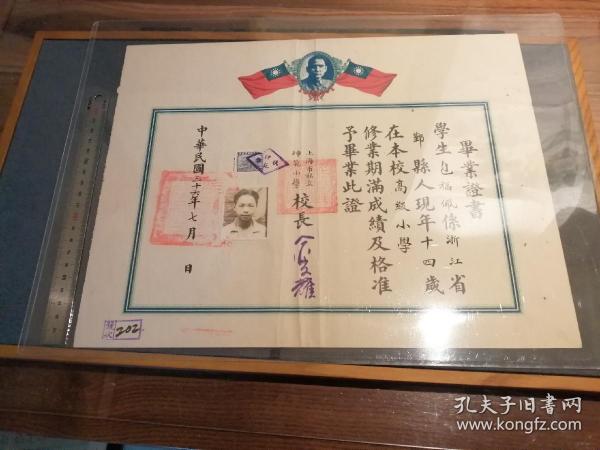 畢業證書
學生包福佩係浙江省
鄞縣人現年十四歲
在本校高級小學
修業期滿成績及格准
予畢業此證
上海市私立
小學
校長
中華民國三十六年七月 日
202
孔夫子旧书网
www.kongfz.com